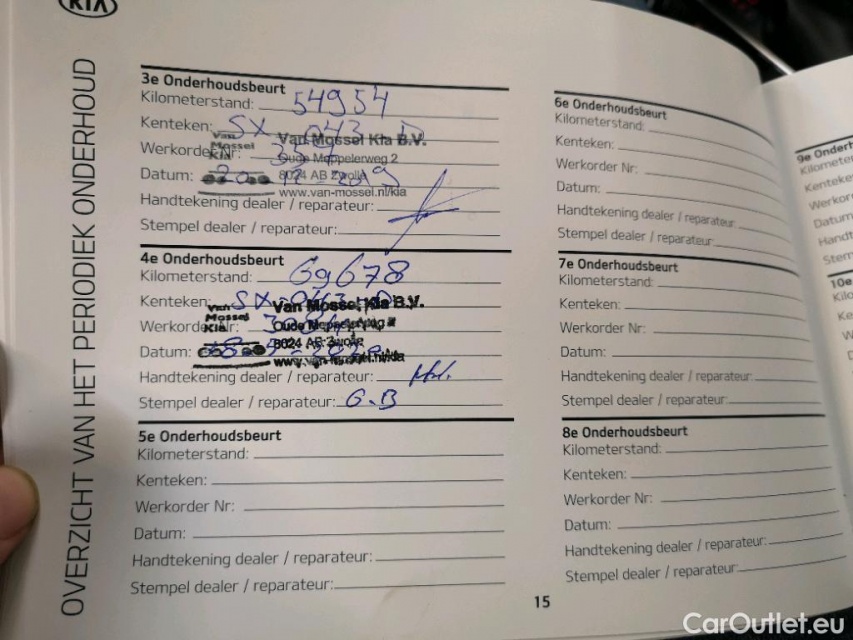 KIA
OVERZICHT VAN HET PERIODIEK ONDERHOUD
3e Onderhoudsbeurt
Kilometerstand: 54954
Kenteken: SX 043 D
Van Mossel Kia B.V.
Van Mossel Kia
Werkorder Nr:
Oude Meppelerweg 2
Datum:
8024 AB Zwolle
www.van-mossel.nl/kia
Handtekening dealer / reparateur:
Stempel dealer / reparateur:
4e Onderhoudsbeurt
Kilometerstand: 69678
Kenteken: SX-043-D
Van Mossel Kia B.V.
Van Mossel Kia
Werkorder Nr:
Oude Meppelerweg 2
Datum:
8024 AB Zwolle
www.van-mossel.nl/kia
Handtekening dealer / reparateur:
Stempel dealer / reparateur: G.B
5e Onderhoudsbeurt
Kilometerstand:
Kenteken:
Werkorder Nr:
Datum:
Handtekening dealer / reparateur:
Stempel dealer / reparateur:
6e Onderhoudsbeurt
Kilometerstand:
Kenteken:
Werkorder Nr:
Datum:
Handtekening dealer / reparateur:
Stempel dealer / reparateur:
7e Onderhoudsbeurt
Kilometerstand:
Kenteken:
Werkorder Nr:
Datum:
Handtekening dealer / reparateur:
Stempel dealer / reparateur:
8e Onderhoudsbeurt
Kilometerstand:
Kenteken:
Werkorder Nr:
Datum:
Handtekening dealer / reparateur:
Stempel dealer / reparateur:
15
9e Onderh
Kilomete
Kenteke
Werkor
Datum
Handt
Stem
10e
Kilo
Ke
W
CarOutlet.eu